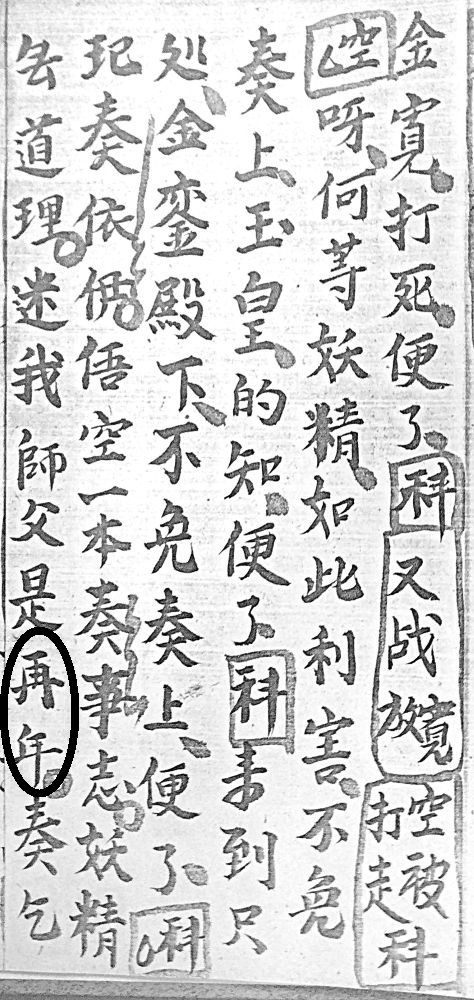 金寬打死便了科又战寬放空被打走科
空呀何等妖精如此利害不免
奏上玉皇的知便了科来到只
处金銮殿下不免奏上便了科
奏依悟空一本奏事志妖精
缶道理迷我師父是再年奏乞